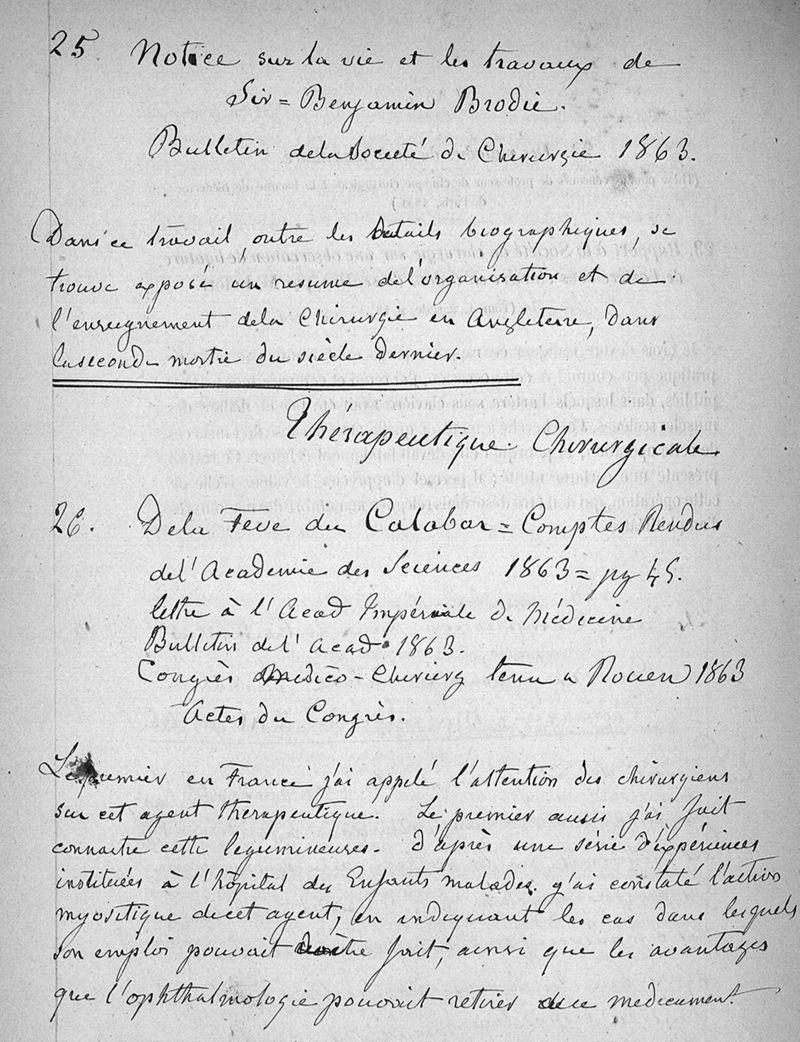 25 Notice sur la vie et les travaux de
Sir = Benjamin Brodie.
Bulletin de la Societé de Chirurgie 1863.
Dans ce travail, outre les details biographiques, se
trouve exposé un resume de l'organisation et de
l'enseignement de la Chirurgie en Angleterre, dans
la seconde moitie du siècle dernier.
Thérapeutique Chirurgicale
26. De la Feve du Calabar = Comptes Rendus
de l'Academie des Sciences 1863 = pg 45.
lettre à l'Acad Impériale de Médecine
Bulletin de l'Acad 1863.
Congrès Medico-Chirurg tenu a Rouen 1863
Actes du Congrès.
Le premier en France j'ai appelé l'attention des chirurgiens
sur cet agent therapeutique. Le premier aussi j'ai fait
connaitre cette legumineuse. d'après une série d'expériences
instituées à l'hôpital des Enfants malades. j'ai constaté l'action
myositique de cet agent, en indiquant les cas dans lesquels
son emploi pouvait être fait, ainsi que les avantages
que l'ophthalmologie pouvait retirer de ce medicament.